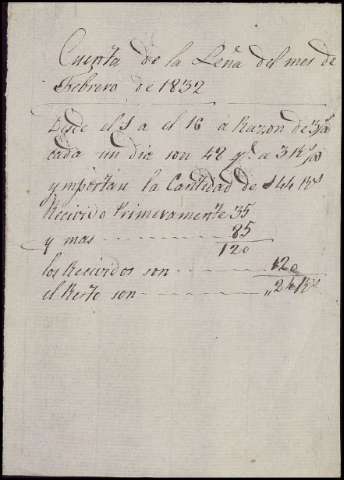 Cuenta de la Leña del mes de
Febrero de 1832
Desde el 1 a el 16 a Razon de 3 qˢ
cada un dia son 48 qˢ a 3 Rˢ
y importan la Cantidad de 144 Rˢ
Recivido Primeramente 35
y mas 85
120
los Recividos son 120
el Resto son 24 Rˢ